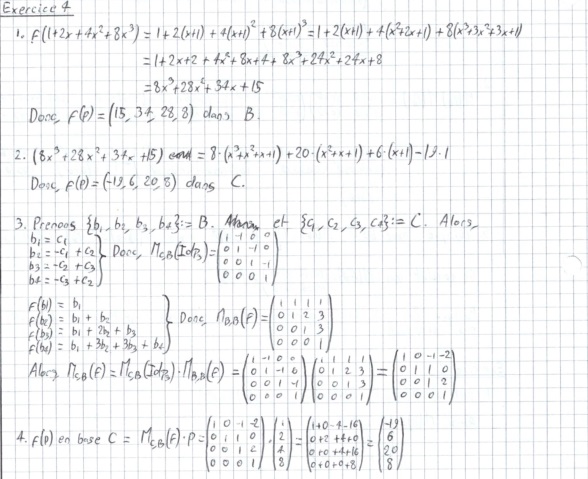 Exercice 4
1. f(1+2x+4x²+8x³) = 1+2(x+1)+4(x+1)²+8(x+1)³ = 1+2(x+1)+4(x²+2x+1)+8(x³+3x²+3x+1)
= 1+2x+2+4x²+8x+4+8x³+24x²+24x+8
= 8x³+28x²+34x+15
Donc, f(p) = (15, 34, 28, 8) dans B.
2. (8x³+28x²+34x+15) = 8·(x³+x²+x+1)+20·(x²+x+1)+6·(x+1)-19·1
Donc, f(p) = (-19, 6, 20, 8) dans C.
3. Prenons {b₁, b₂, b₃, b₄} := B. et {c₁, c₂, c₃, c₄} := C. Alors,
b₁ = c₁
b₂ = -c₁ + c₂
b₃ = -c₂ + c₃
b₄ = -c₃ + c₂
} Donc, M_{C,B}(Id_{P₃}) = (1 -1 0 0; 0 1 -1 0; 0 0 1 -1; 0 0 0 1)
f(b₁) = b₁
f(b₂) = b₁ + b₂
f(b₃) = b₁ + 2b₂ + b₃
f(b₄) = b₁ + 3b₂ + 3b₃ + b₄
} Donc, M_{B,B}(f) = (1 1 1 1; 0 1 2 3; 0 0 1 3; 0 0 0 1)
Alors, M_{C,B}(f) = M_{C,B}(Id_{P₃})·M_{B,B}(f) = (1 -1 0 0; 0 1 -1 0; 0 0 1 -1; 0 0 0 1) (1 1 1 1; 0 1 2 3; 0 0 1 3; 0 0 0 1) = (1 0 -1 -2; 0 1 1 0; 0 0 1 2; 0 0 0 1)
4. f(p) en base C = M_{C,B}(f)·P = (1 0 -1 -2; 0 1 1 0; 0 0 1 2; 0 0 0 1) · (1; 2; 4; 8) = (1+0-4-16; 0+2+4+0; 0+0+4+16; 0+0+0+8) = (-19; 6; 20; 8)